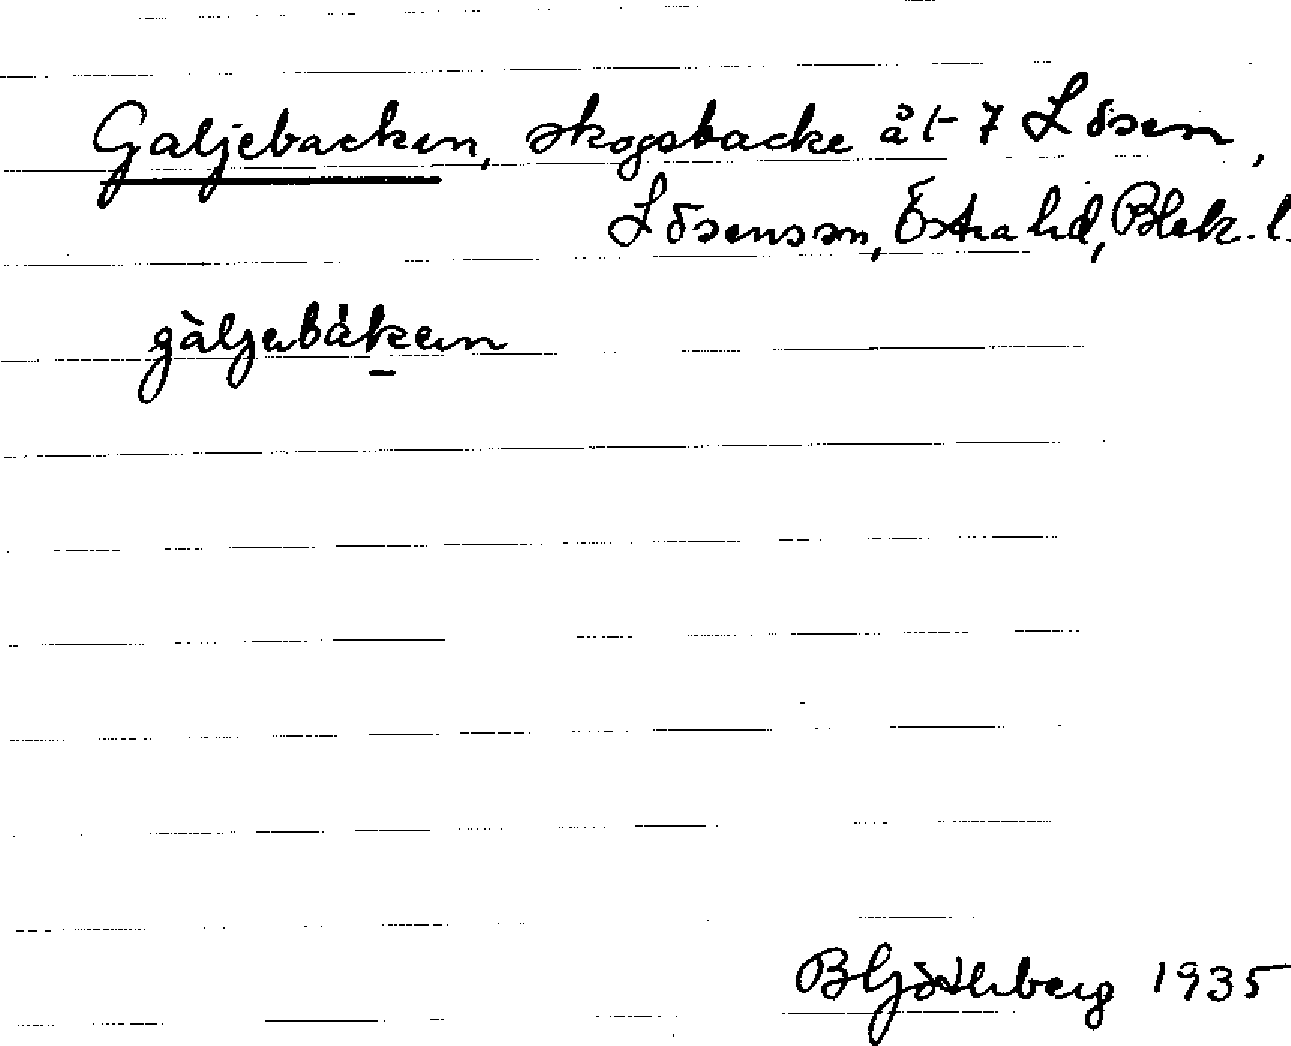 Galjebacken, skogsbacke åt 7 Lösen,
Lösens sn, Östra hd, Blek. l.
gàljebáken
B Göthberg 1935